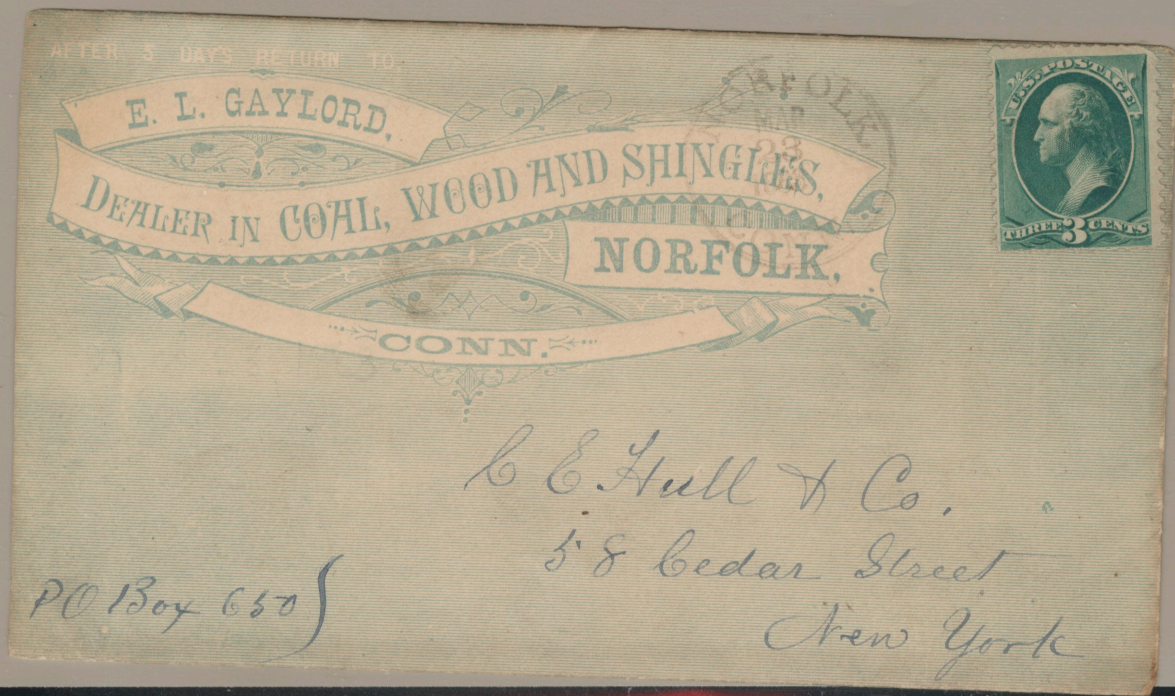 AFTER 5 DAY'S RETURN TO
E. L. GAYLORD,
DEALER IN COAL, WOOD AND SHINGLES,
NORFOLK,
CONN.
NORFOLK
MAR
23
CONN
U.S. POSTAGE
THREE 3 CENTS
C E Hull & Co.
58 Cedar Street
New York
PO Box 650